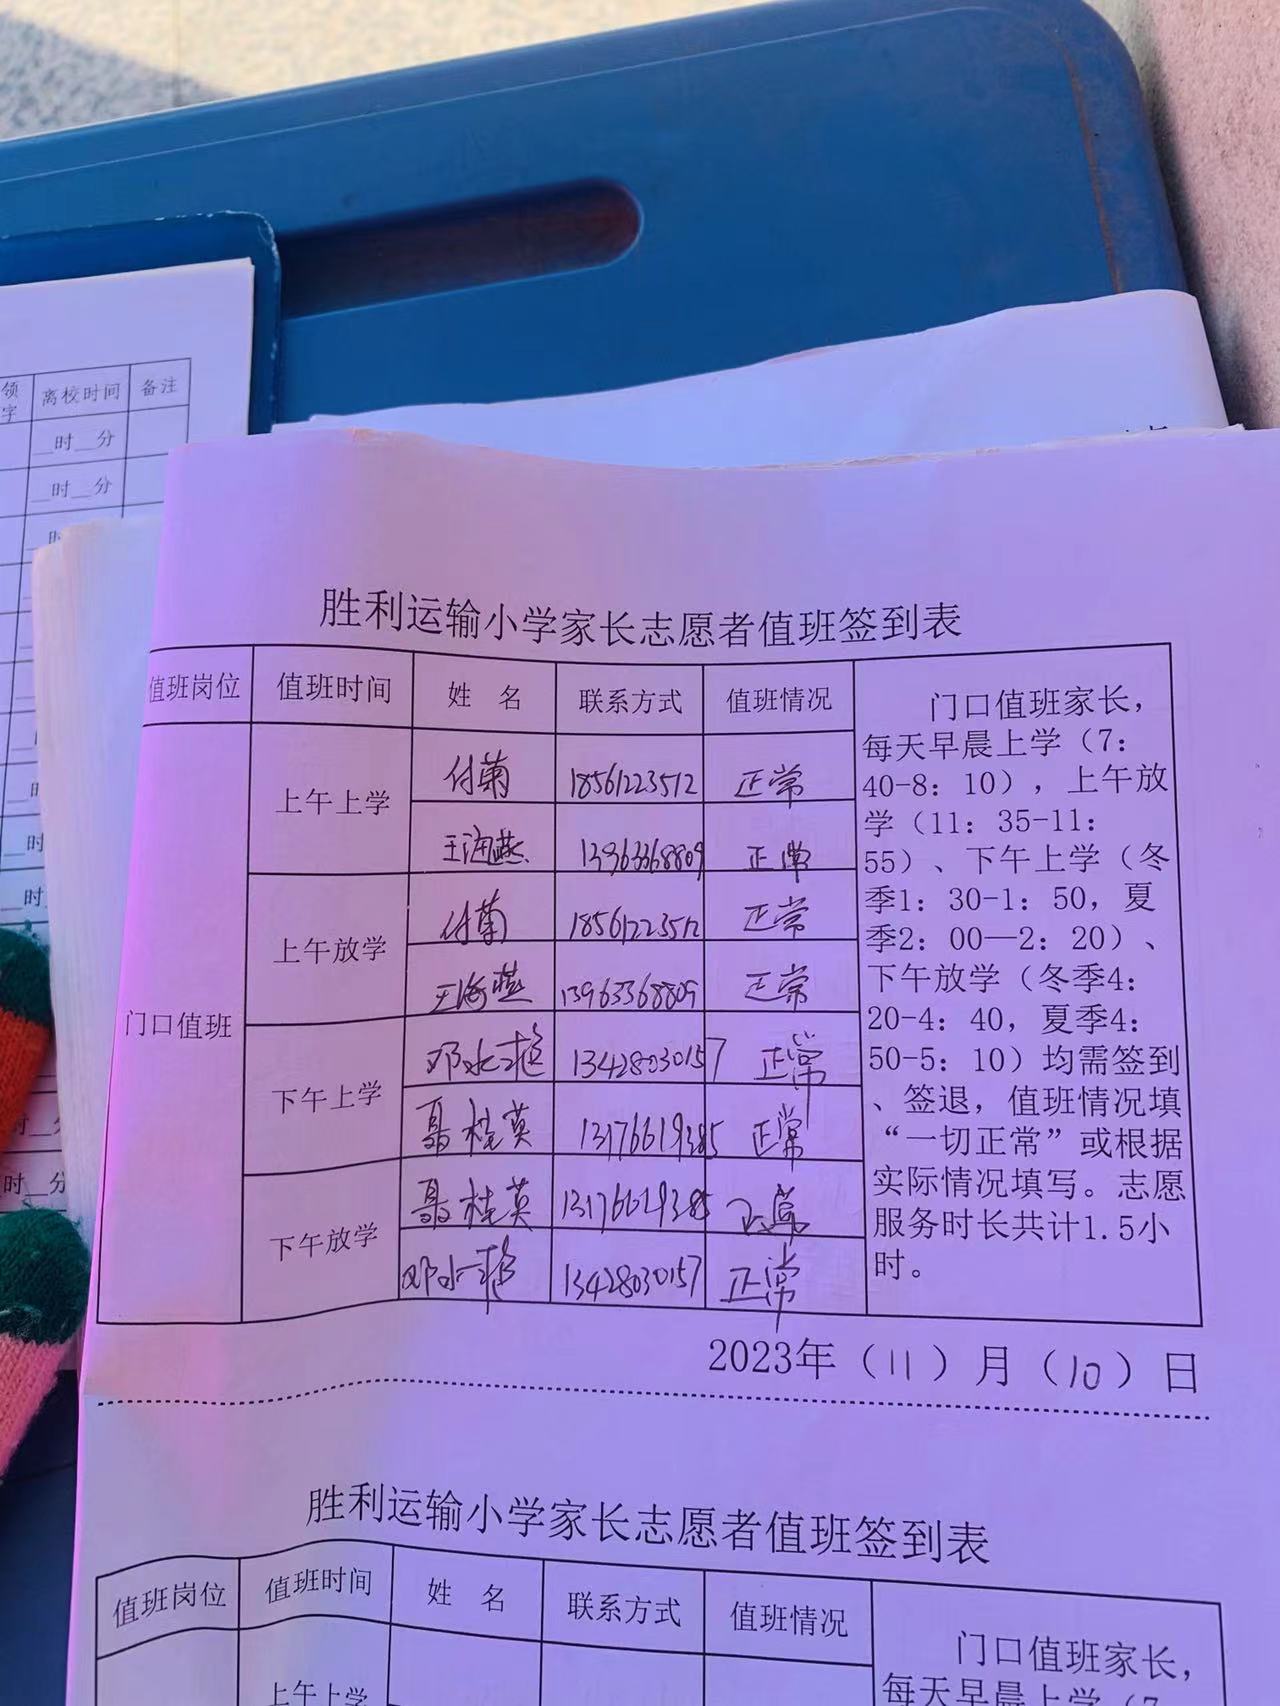 领字 离校时间 备注
__时__分
__时__分
时
时
时
时__分
胜利运输小学家长志愿者值班签到表
值班岗位 值班时间 姓 名 联系方式 值班情况
门口值班
上午上学 付菊 18561223512 正常
王海燕 13963368809 正常
上午放学 付菊 18561223512 正常
王海燕 13963368809 正常
下午上学 13428030157 正常
聂桂英 13176619385 正常
下午放学 聂桂英 13176619385 正常
13428030157 正常
门口值班家长，
每天早晨上学（7：
40-8：10），上午放
学（11：35-11：
55）、下午上学（冬
季1：30-1：50，夏
季2：00—2：20）、
下午放学（冬季4：
20-4：40，夏季4：
50-5：10）均需签到
、签退，值班情况填
“一切正常”或根据
实际情况填写。志愿
服务时长共计1.5小
时。
2023年（11）月（10）日
胜利运输小学家长志愿者值班签到表
值班岗位 值班时间 姓 名 联系方式 值班情况
上午上学
门口值班家长，
每天早晨上学（7：